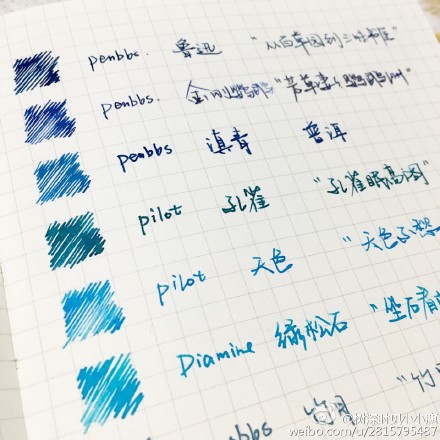 penbbs. 鲁迅 "从百草园到三味书屋
penbbs. 金刚鹦鹉 "芳草萋萋鹦鹉洲"
penbbs 滇青 普洱
pilot 孔雀 "孔雀眠高阁"
pilot 天色 "天色
Diamine 绿松石 "坐石看
bbs 竹月 "竹
weibo.com/u/2815795487